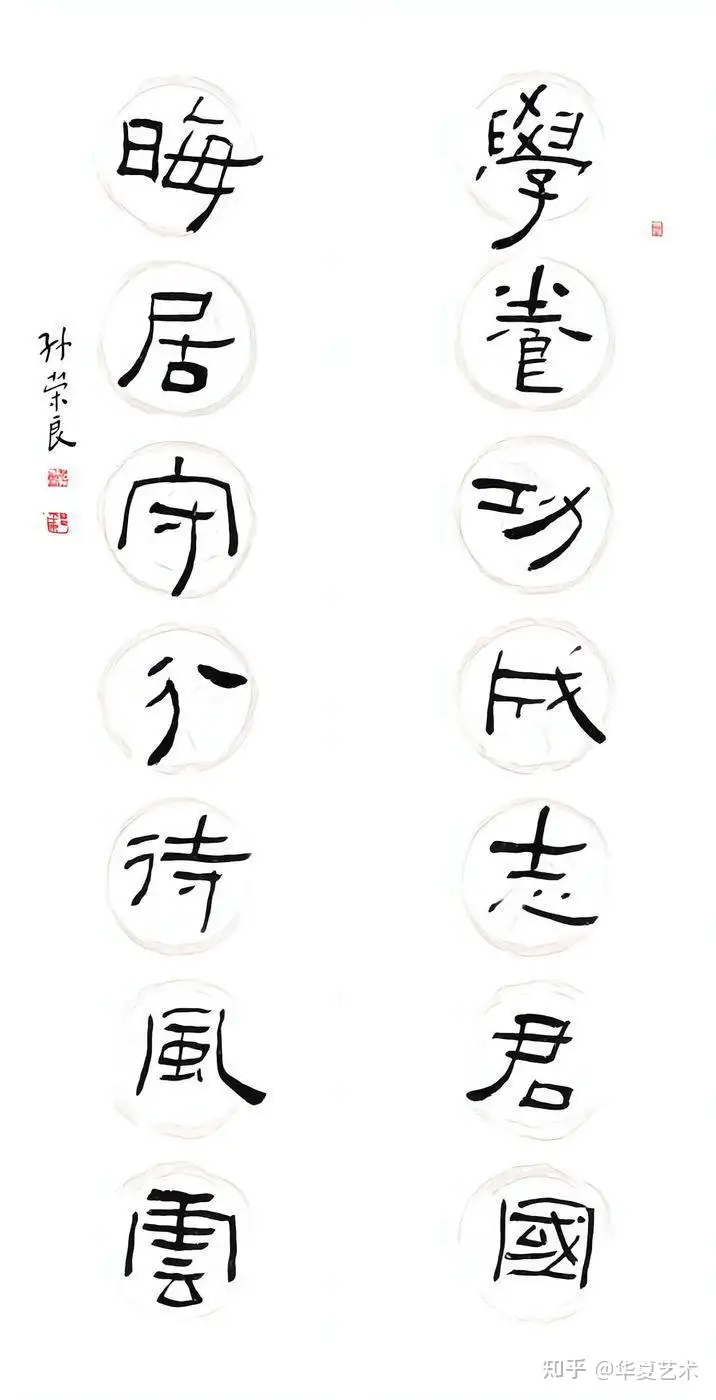 學養功成志君國
晦居守分待風雲
孙荣良
知乎 @华夏艺术